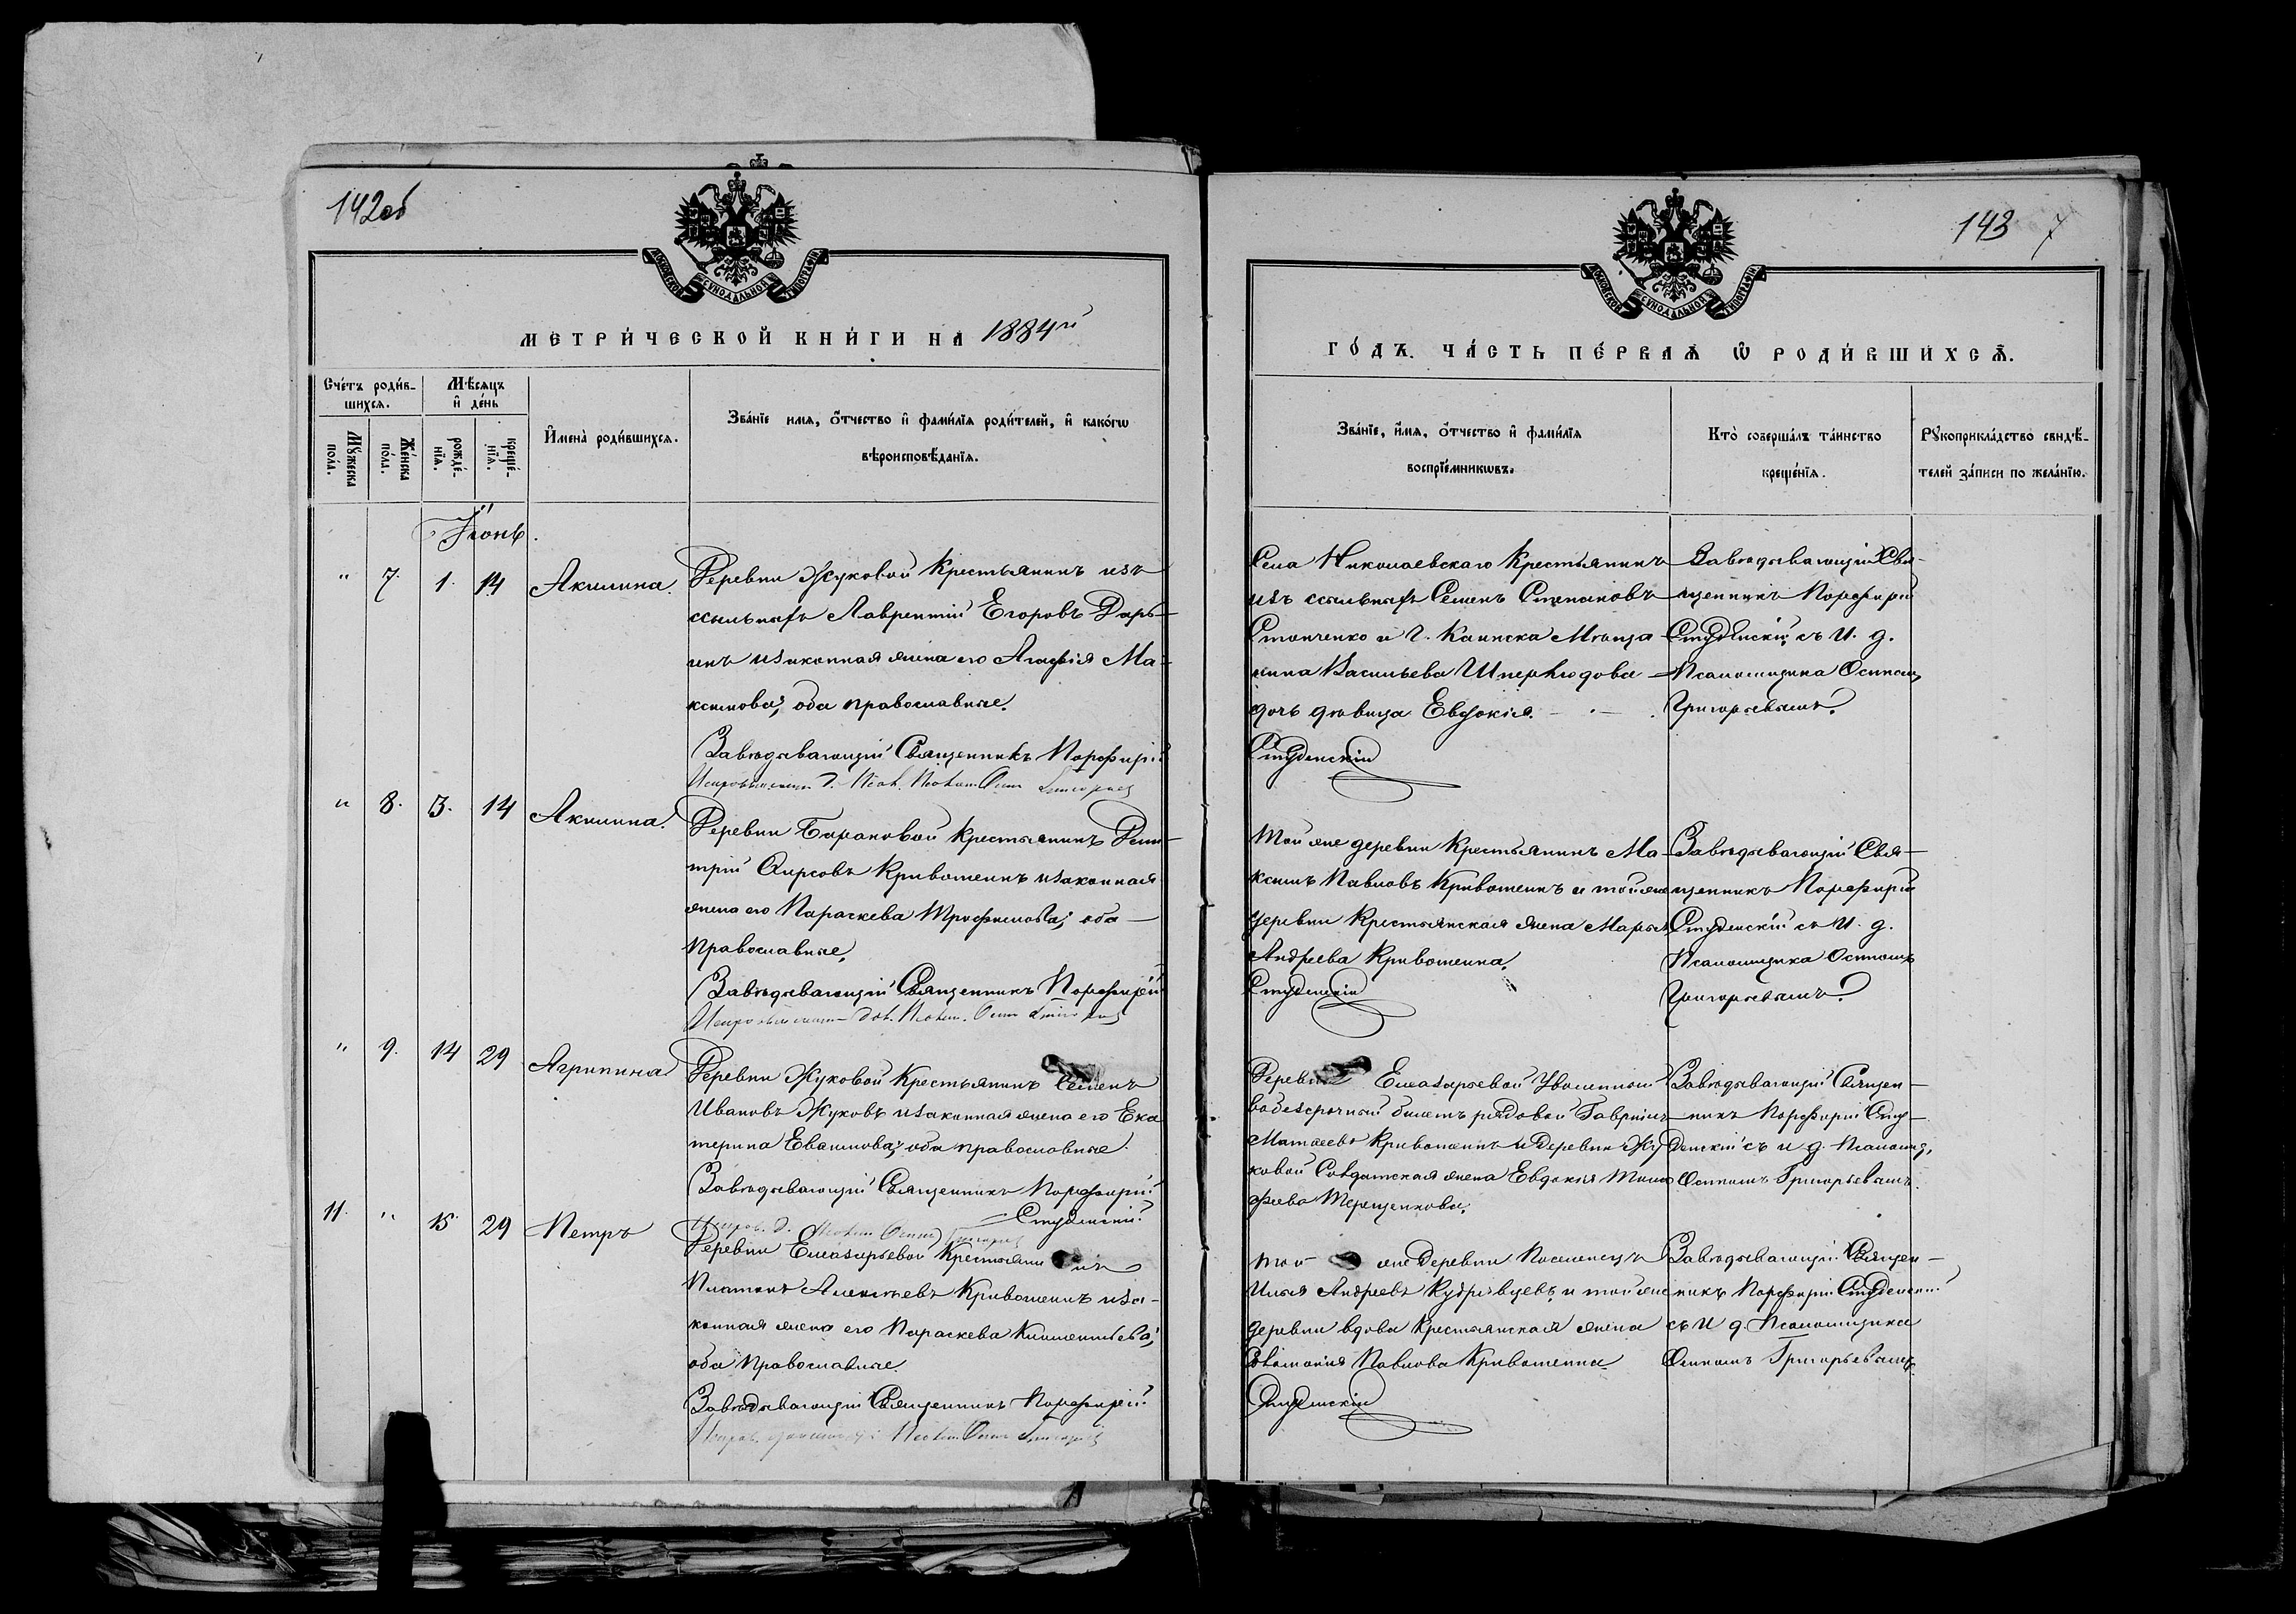 142об
МОСКОВСКОЙ СѴНОДАЛЬНОЙ ТИПОГРАФІИ
МЕТРИ́ЧЕСКОЙ КНИ́ГИ НА 1884й
Сче́тъ роди́в-
шихся.
Мѣ́сяцъ
и҆ де́нь
Мꙋ́жеска
по́ла.
Же́нска
по́ла.
рожде́-
нїѧ.
креще́-
нїѧ.
И҆мена̀ роди́вшихсѧ.
Зва́нїе имѧ, ѻ҆́тчество и҆ фами́лїѧ роди́телей, и҆ како́гѡ
вѣроисповѣ́данїѧ.
Іюнь.
" 7. 1. 14 Акилина.
Деревни Жуковой крестьянинъ изъ
ссыльныхъ Лаврентій Егоровъ Дарь-
инъ и законная жена его Агафія Ма-
ксимова, оба православные.
Завѣдывающій Священникъ Порфирій
" 8. 13. 14 Акилина.
Деревни Барановой крестьянинъ Дми-
трій Фирсовъ Кривошеинъ и законная
жена его Параскева Трофимова; оба
православные.
Завѣдывающій Священникъ Порфирій
" 9. 14 29 Агрипина
Деревни Жуковой Крестьянинъ Семенъ
Ивановъ Жуковъ и законная жена его Ека
терина Евгнмова; оба православные.
Завѣдывающій Священникъ Порфирій
Студенскій
11. " 15. 29 Петръ
Деревни Елизарьевой Крестьянинъ
Платонъ Алексѣевъ Кривошеинъ и за-
конная жена его Параскева Климентьева,
оба православные
Завѣдывающій Священникъ Порфирій
143 7
МОСКОВСКОЙ СѴНОДАЛЬНОЙ ТИПОГРАФІИ
ГО́ДЪ. ЧА́СТЬ ПЕ́РВАѦ Ѽ РОДИ́ВШИХСѦ.
Зва́нїе, и҆́мѧ, ѻ҆́тчество и҆ фами́лїѧ
воспрїе́мникѡвъ.
Кто̀ соверша́лъ та́инство
креще́нїѧ.
Рꙋкоприкла́дство свидѣ́-
телей за́писи по жела́нїю.
Села Николаевскаго Крестьянинъ
изъ ссыльныхъ Семенъ Степановъ
Станченко и г. Каинска Мѣща-
нина Васильева
дочь дѣвица Евдокія.
Студенскій
Завѣдывающій Свя-
щенникъ Порфирій
Студенскій съ И. д.
Псаломщика Осипомъ
Григорьевымъ.
Той же деревни Крестьянинъ Ма-
ксимъ Павловъ Кривошеинъ и той же
деревни Крестьянская жена Марья
Андреева Кривошеина.
Студенскій
Завѣдывающій Свя-
щенникъ Порфирій
Студенскій съ И. д.
Псаломщика Осипомъ
Григорьевымъ.
Деревни Елизарьевой Уволенный
въ безсрочный билетъ рядовой Гавріилъ
Матвеевъ Кривошеинъ и Деревни Жу
ковой Солдатская жена Евдокія Тимо
феева Терещенкова.
Завѣдывающій Священ-
никъ Порфирій Сту-
денскій съ и д. Псаломщ.
Осипомъ Григорьевымъ.
той же Деревни Поселенецъ
Илья Андреевъ Кудрявцевъ, и той же
деревни вдова Крестьянская жена
Павлова Кривошеина
Студенскій
Завѣдывающій Священ-
никъ Порфирій Студенскій
съ И д. Псаломщика
Осипомъ Григорьевымъ.